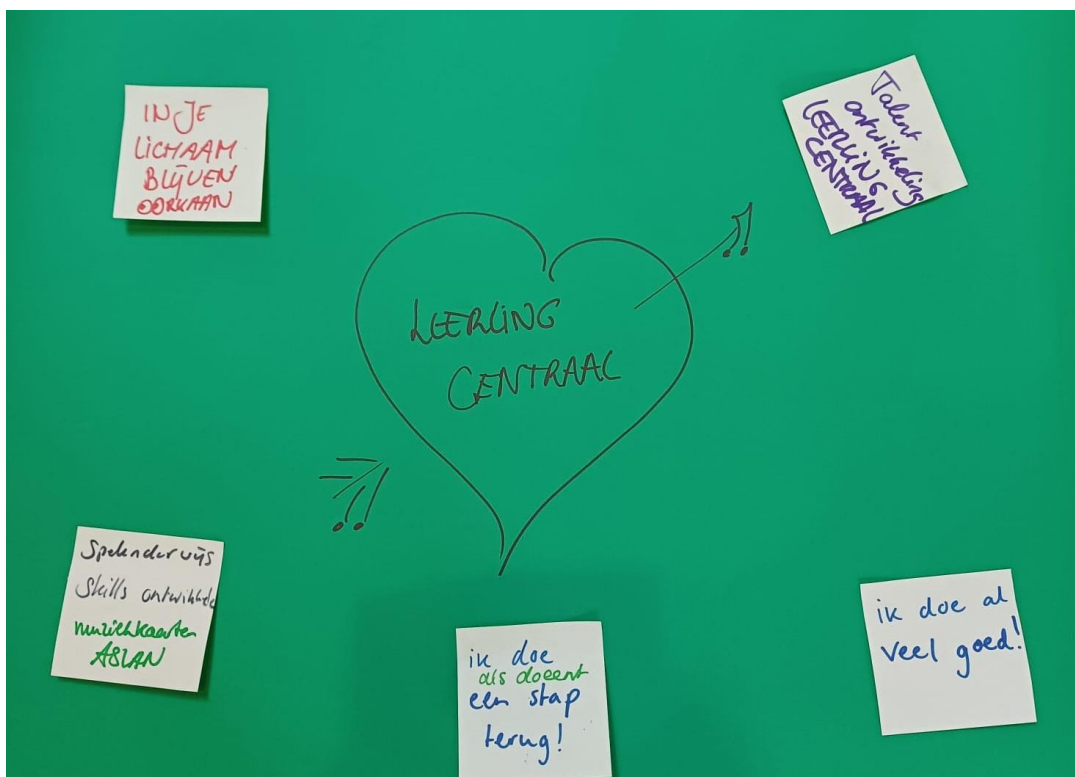 IN JE
LICHAAM
BLIJVEN
OORKAAN
Talent
ontwikkeling
LEERLING
CENTRAAL
LEERLING
CENTRAAL
Spelenderwijs
Skills ontwikkele
muziekkaarten
ASLAN
ik doe
als docent
een stap
terug!
ik doe al
veel goed!